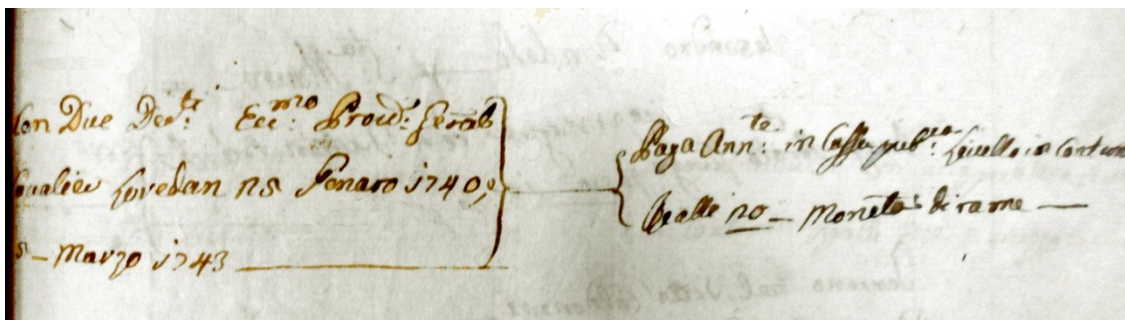 Con Due Dec.ti Ecc.mo Proved.r General
Cavalier Loredan ns Genaro 1740,
s - Marzo 1743
Paga Ann.te in Cassa pub.ca Livello in Contan
Realli no - Moneta di rame